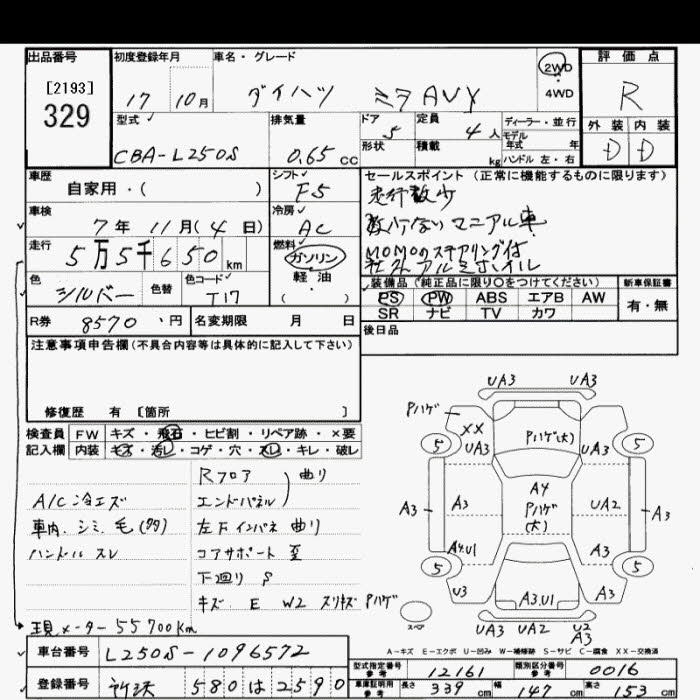 出品番号 初度登録年月 車名・グレード 評価点
[2193]
329
17 10月 ダイハツ ミラAVY 2WD
4WD
R
型式 排気量 ドア 定員 ディーラー・並行 外装 内装
CBA-L250S 0.65cc 5 4人 モデル年式 年 D D
形状 積載 kg ハンドル 左・右
車歴 シフト セールスポイント(正常に機能するものに限ります)
自家用・( ) F5 走行散少
車検 冷房 数少ないマニアル車
7年 11月(4日) AC MOMOのステアリング付
走行 燃料 社外アルミホイル
5万5千650km ガソリン
軽・油
( )
色 色替 色コード 装備品(純正品に限り○をつけてください) 新車保証書
シルバー T17 PS PW ABS エアB AW 有・無
SR ナビ TV カワ
R券 8570・円 名変期限 月 日 後日品
注意事項申告欄(不具合内容等は具体的に記入して下さい)
修復歴 有 [箇所 ]
検査員 FW キズ・飛石・ヒビ割・リペア跡・×要
記入欄 内装 キズ・汚レ・コゲ・穴・スレ・キレ・破レ
Rフロア
エンドパネル 曲り
A/C冷エズ
車内、シミ、毛(多) 左下インパネ 曲り
ハンドル スレ コアサポート 歪
下回り S
キズ、E W2 スリキズ Pハゲ
現メーター 55700km
UA3 UA3
Pハゲ
XX Pハゲ(大)
5 UA3 UA3 5
A3 A3 A4 UA2 A3
Pハゲ
(大)
A4.U1 A3
5 5
U3 A3.U1 A3
スペア UA3 UA2 U2
A3
A-キズ E-エクボ U-凹み W-補修跡 S-サビ C-腐食 XX-交換済
車台番号 L250S-1096572
型式指定番号 参考 12161 類別区分番号 参考 0016
登録番号 580 は 2590
車庫証明用 参考 長さ 339cm 幅 147cm 高さ 153cm